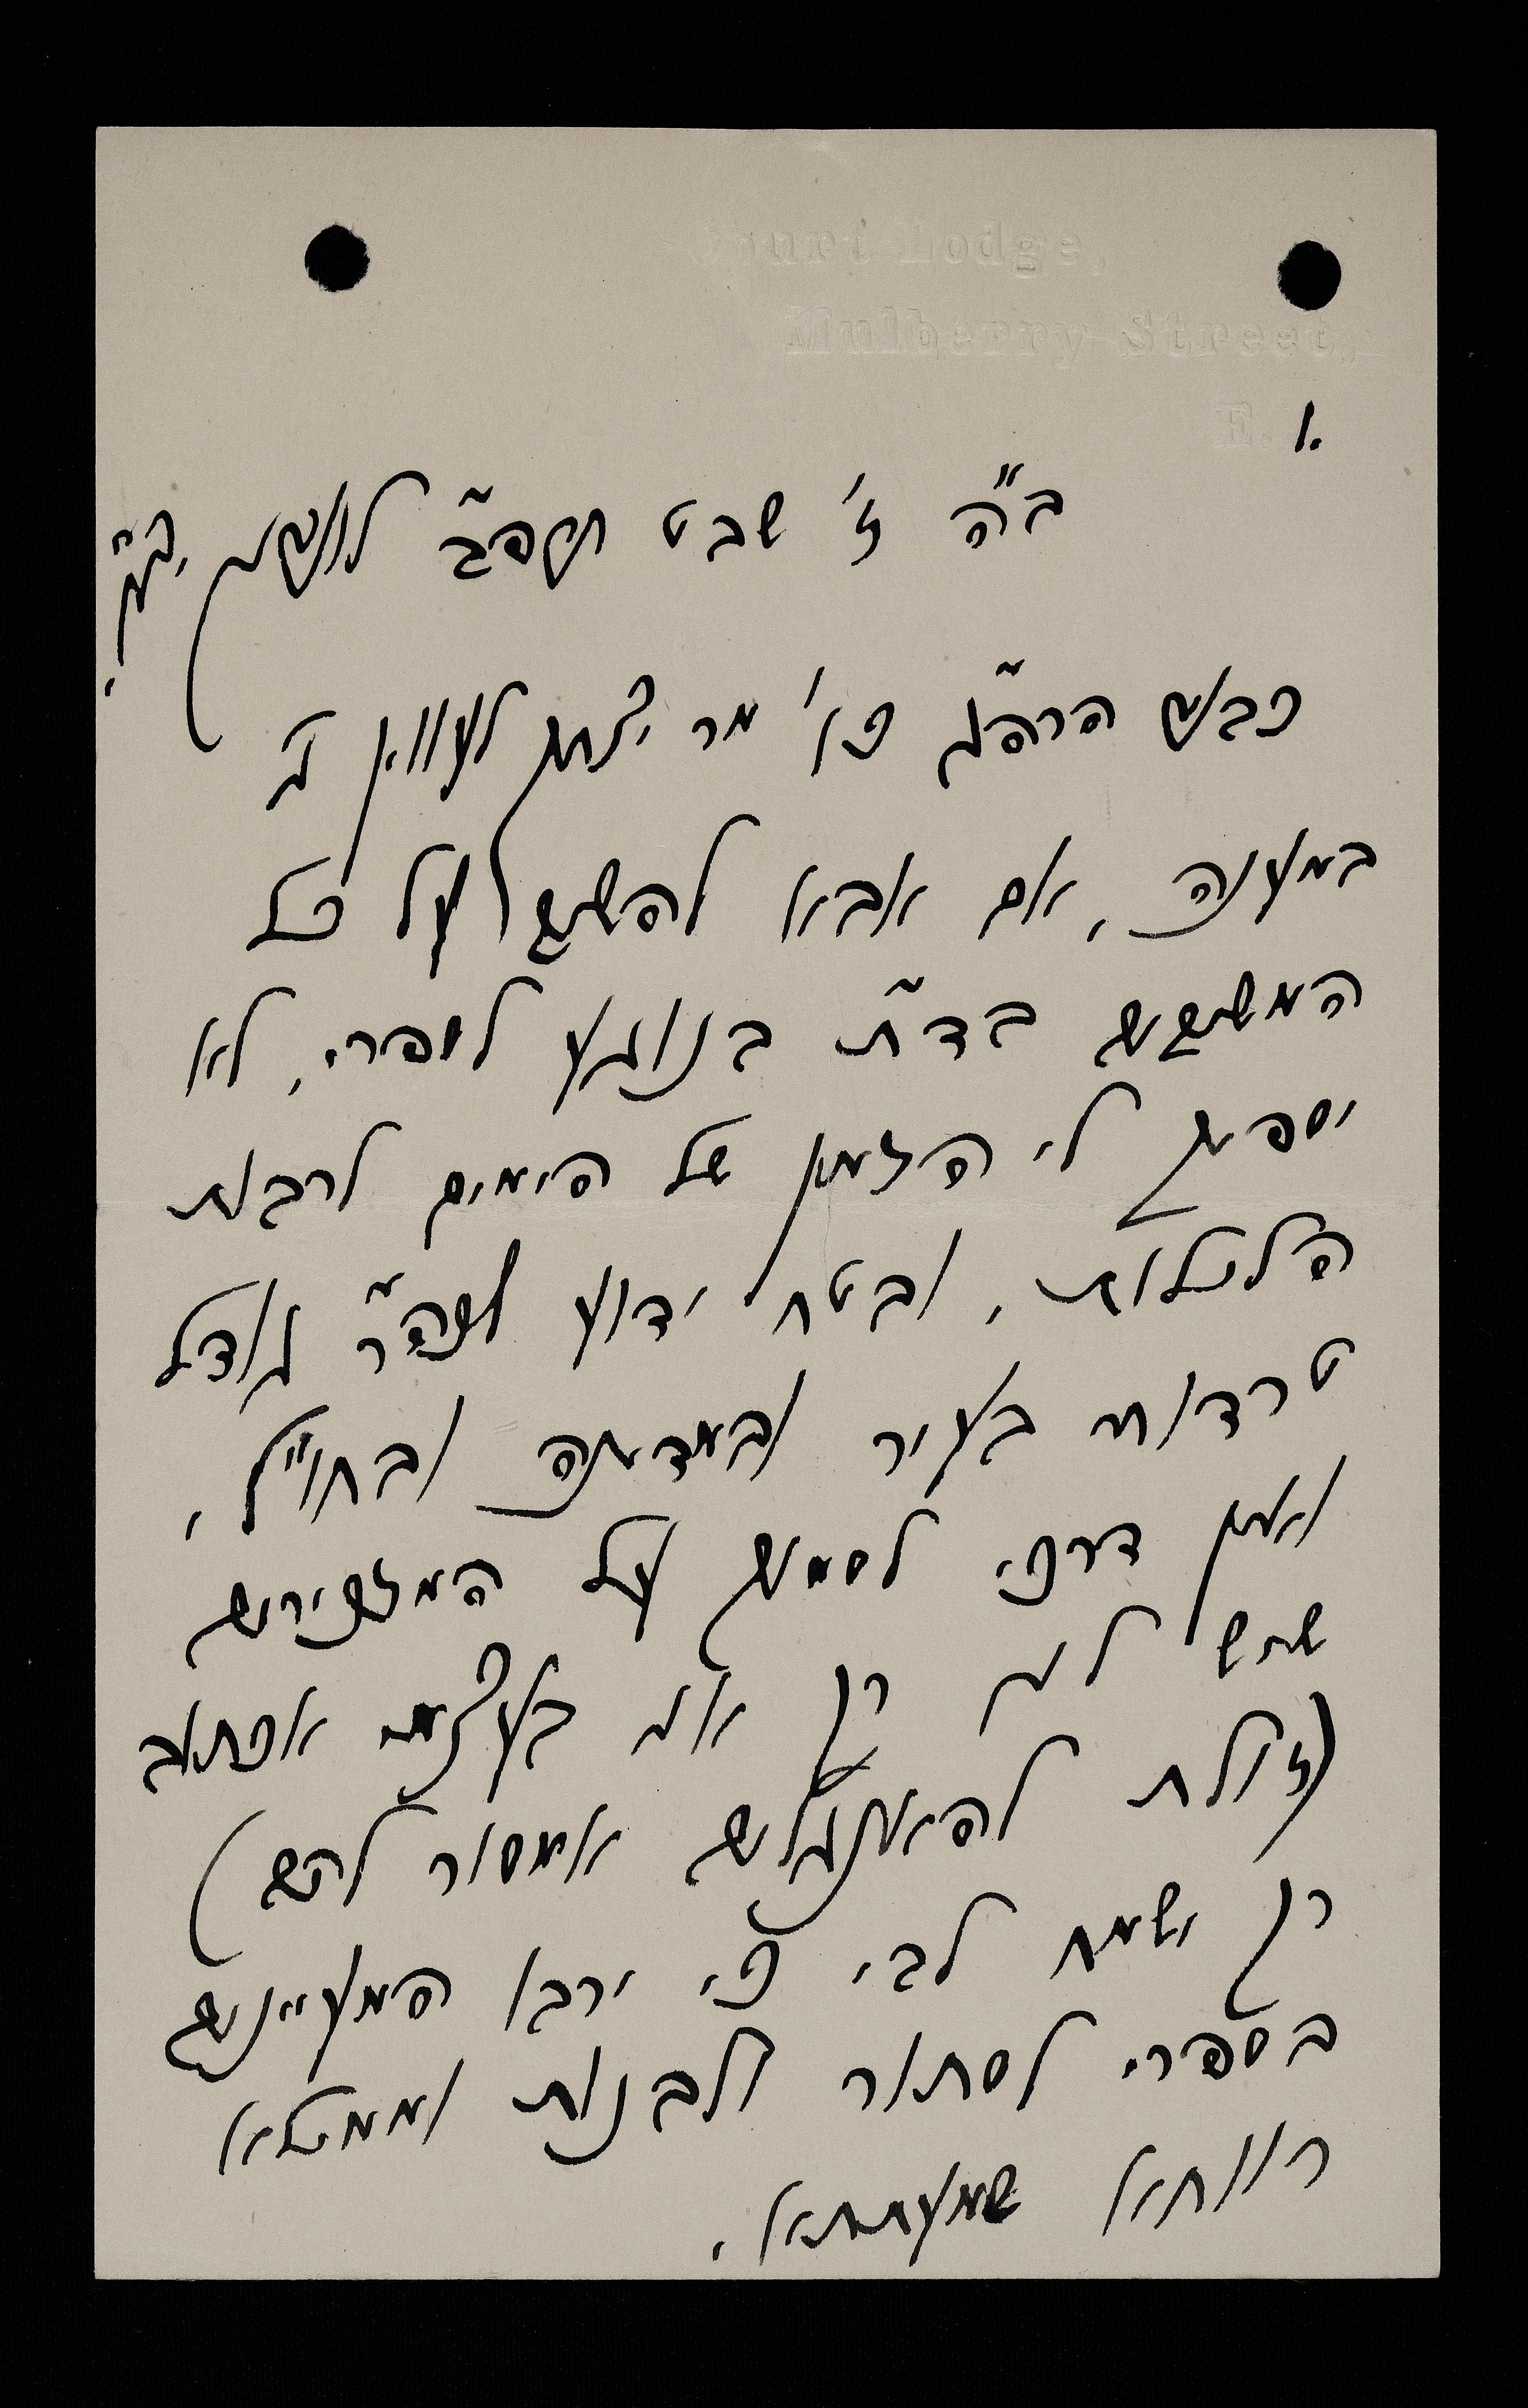 Court Lodge,
Mulberry Street,
E. 1.
ב"ה ז' שבט תרפ"ב לונדון יצ"ו.
כבוד הרה"ג כו' מר יצחק לעווין נ"י
במענה, אם אבא להשיב על כל
המשיגים בד"ת בנוגע לספרי, לא
יספיק לי הזמן של הימים לרבות
הלילות, ובטח ידוע לכהד"ר גודל
טרדותי בעיר ובמדינה ובחו"ל,
ואין דרכי לסמוך על המזכירים
שיש לי, רק אני בעצמי אכתוב
(זולת להאינגלישע אמסור להם)
רק ישמח לבי כי ירבו המעיינים
בספרי לסתור ולבנות וממילא
רווחא שמעתתא.